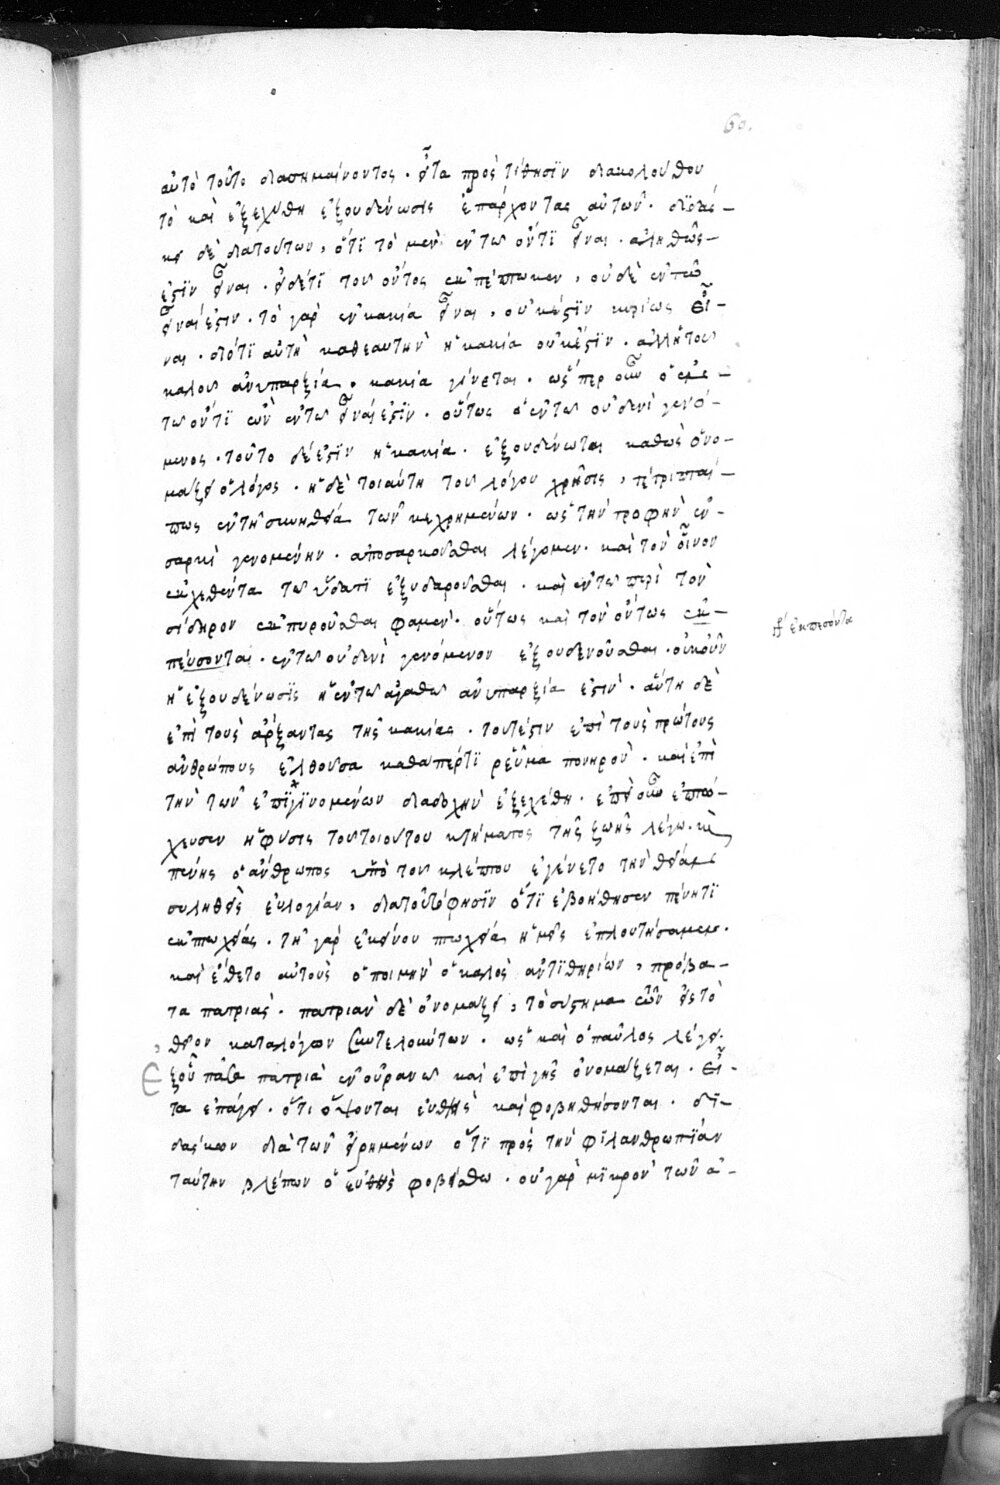 60.
αὐτὸ τοῦτο διασημαίνοντος. εἶτα πρὸς τίθησϊν διακολούθου
τὸ καὶ ἐξεχύθη ἐξουδένωσις ἐπάρχοντας αὐτῶν. διδάσ-
κει δὲ διατούτων, ὅτϊ τὸ μὲν ἐν τω ὄντϊ εἶναι. ἀληθῶς-
ἐστϊν εἶναι. εἰδέτϊ τοῦ ὄντος ἐκπέπτωκεν, οὐδὲ ἐν τῶ
εἶναί ἐστιν. τὸ γὰρ ἐν κακία εἶναι, οὐκέστϊν κυρίως εἶ-
ναι. διότι αὐτὴ καθεαυτὴν ἡ κακία οὐκἔστϊν. ἀλλἡτοῦ
καλοῦ ἀνυπαρξία, κακία γίνεται. ὥσπερ οὖν ὁ ἐν
τω ὄντϊ ὢν ἐν τω εἶναί ἐστϊν. οὕτως ὁ ἐν τω οὐδενὶ γενό-
μενος. τοῦτο δέ ἐστϊν ἡ κακία. ἐξουδένωται καθὼς ὀνο-
μάζει ὁ λόγος. ἡ δὲ τοιαύτη τοῦ λόγου χρῆσις, τέτριπταί-
πως ἐν τῆ συνηθεία τῶν κεχρημένων. ὡς τὴν τροφὴν ἐν-
σαρκὶ γενομένην. ἀποσαρκοῦσθαι λέγομεν. καὶ τὸν οἶνον
ἐκχεθέντα τω ὕδατϊ ἐξυδαροῦσθαι. καὶ ἐν τω πυρὶ τὸν
σίδηρον ἐκπυροῦσθαι φαμὲν. οὕτως καὶ τὸν ὄντως ἐκ-
πέυσονται. ἐν τω οὐδενὶ γενόμενον ἐξουδενοῦσθαι. οὐκοῦν
ἡ ἐξουδένωσϊς ἡ ἐν τω ἀγαθω ἀνυπαρξία ἐστιν. αὕτη δὲ
ἐπὶ τοὺς ἄρξαντας τῆς κακίας. τουτέστιν ἐπὶ τοὺς πρώτους
ἀνθρώπους ἐλθοῦσα καθαπέρτϊ ῥεῦμα πονηρὸν. καὶ ἐπὶ
τὴν τῶν ἐπιγϊνομένων διαδοχὴν ἐξεχέθη. ἐπεὶ οὖν ἐπτώ-
χευσεν ἡ φύσις τοῦ τοιούτου κτήματος τῆς ζωῆς λέγω. καὶ
πένης ὁ ἄνθρωπος ὑπὸ τοῦ κλέπτου ἐγένετο τὴν θείαν
συληθεὶς εὐλογίαν, διατοῦτό φησϊν ὅτϊ ἐβοήθησεν πένητϊ
ἐκ πτωχείας. τῆ γὰρ ἐκείνου πτωχεία ἡμεῖς ἐπλουτήσαμεν.
καὶ ἔθετο αὐτοὺς ὁ ποιμὴν ὁ καλὸς ἀντϊ θηρίων, πρόβα-
τα πατριάς. πατριὰν δὲ ὀνομάζει, τὸ σύστημα ὧν εἰς τὸ
θεῖον κατάλόγων συντελούντων. ὡς καὶ ὁ παῦλος λέγει.
ἐξ οὗ πᾶσα πατριὰ ἐν οὐρανω καὶ ἐπὶ γῆς ὀνομάζεται. εἶ-
τα ἐπάγει. ὅτι ὄψονται εὐθεῖς καὶ φοβηθήσονται. δϊ-
δάσκων διὰ τῶν εἰρημένων ὅτϊ πρὸς τὴν φϊλανθρωπίαν
ταύτην βλέπων ὁ εὐθὺς φοβείσθω. οὐ γὰρ μϊκρὸν τῶν ἁ-
ἐκπεσόντα